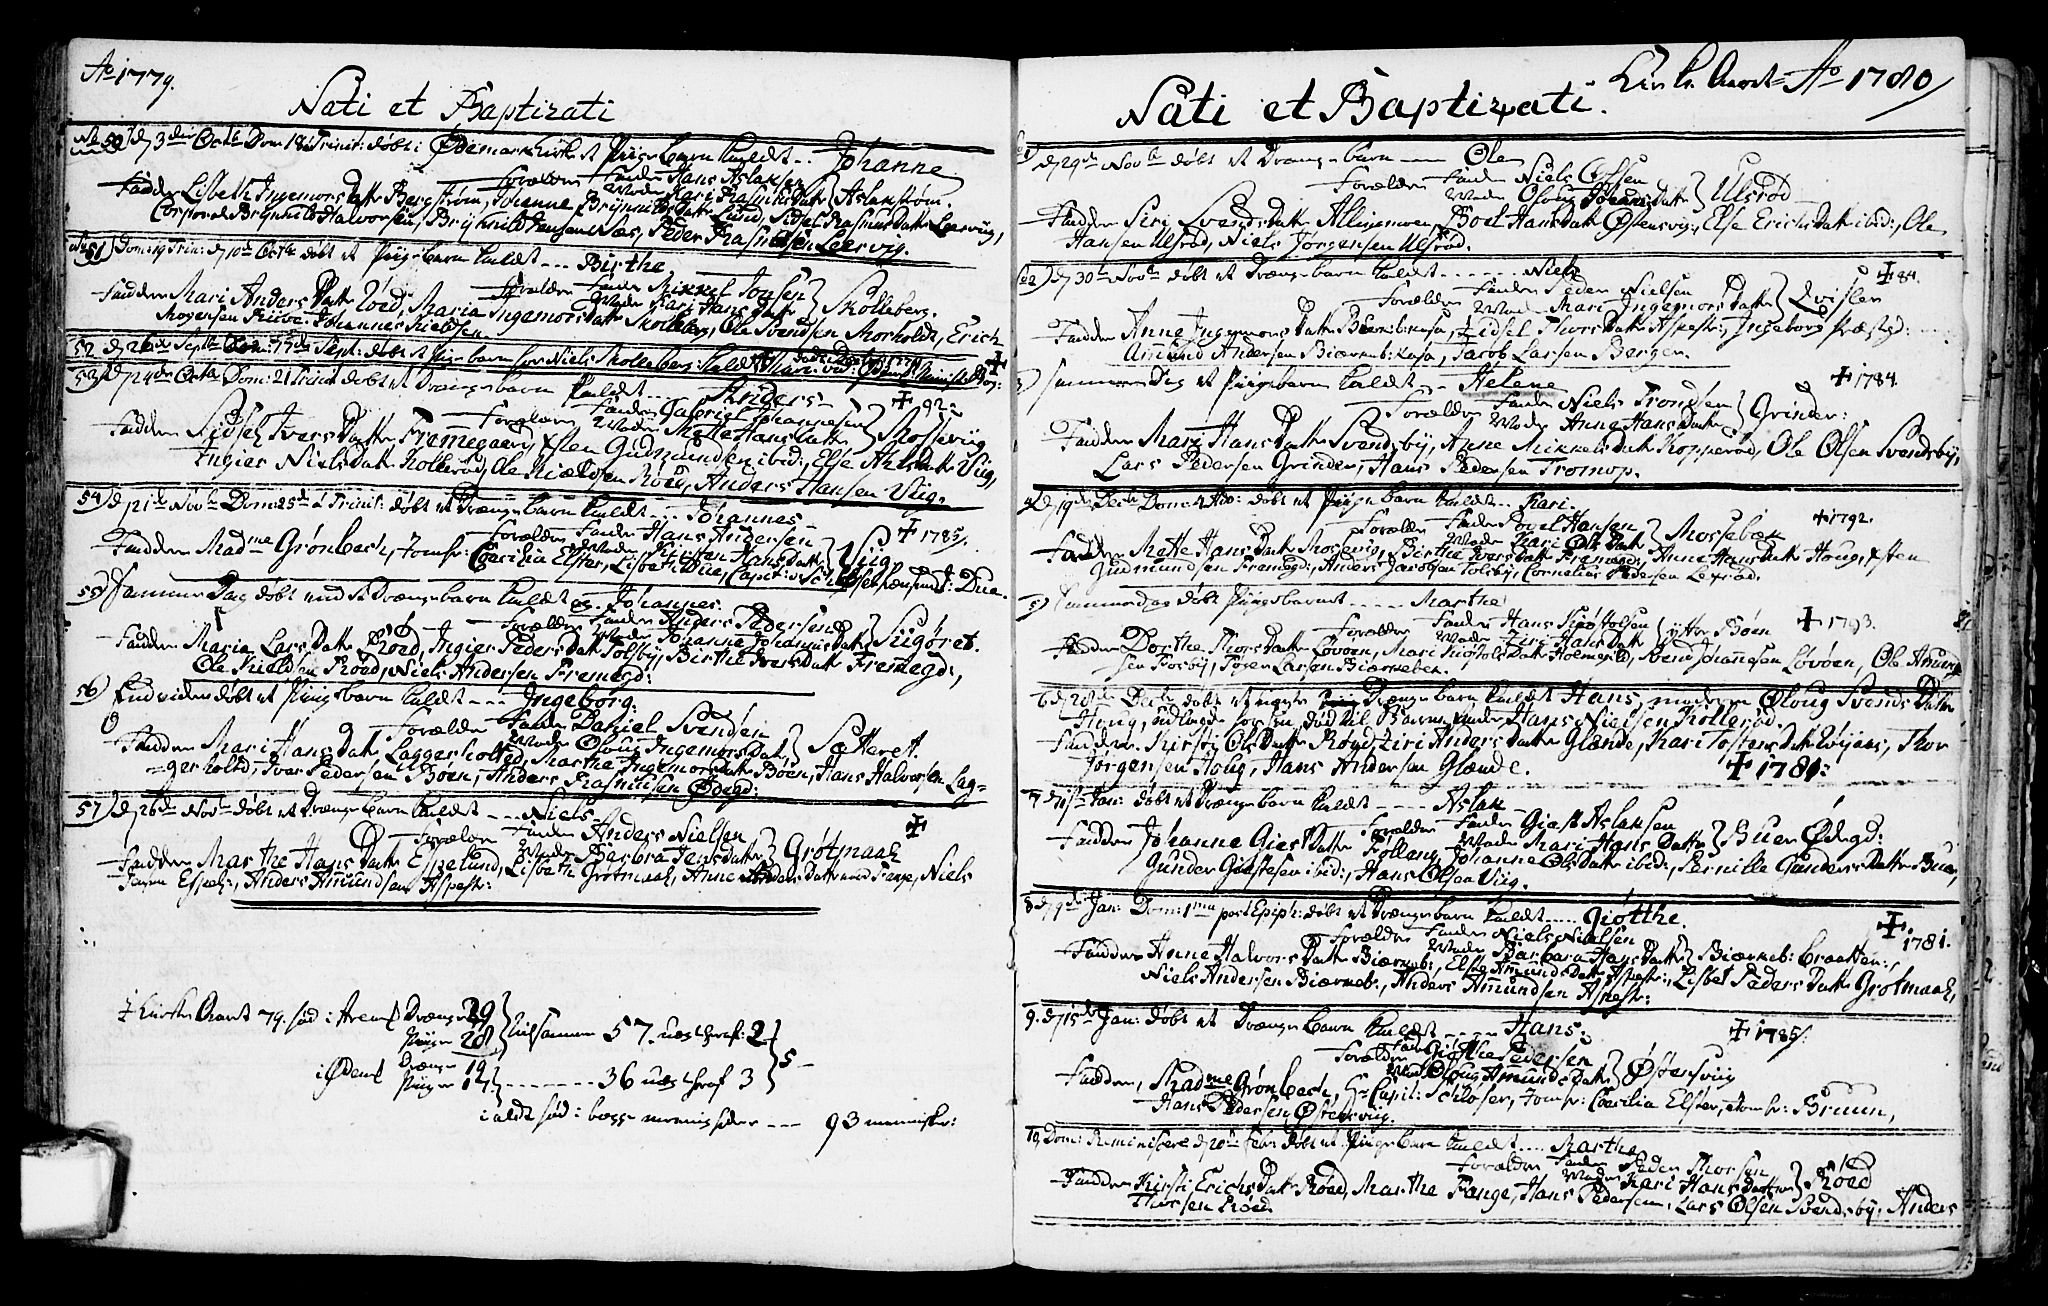 Ao 1779.
Nati et Baptizati
No 50 d 3die Octb Dom 18 Trinit: døbt i Ødemark Kirke et Pigebarn kaldet .. Johanne
Forældre Fader Hans Aslaksen
Moder Kari Rasmus Datter } Aslakstrøm.
Fadder Lisbeth Ingemors Datter Bergstrøm, Johanne Brÿnnilds Datter Lund, Sidsel Rasmus Datter Leervig,
Corporal Brÿnnild Halvorsen, Brÿnnild Jensen Næs, Peder Rasmussen Leervig.
No 51) Dom: 19 Trin: d 10de Octb døbt et Pigebarn kaldet --- Birthe
Forældre Fader Mikkel Jonsen
Moder Kari Hans Datter } Skolleberg.
Fadder Mari Anders Datter Röed, Maria Ingemors Datter Skolleberg, Ole Svendsen Morholdt, Erich
Mogensen Riiser, Johannes Nielsen
52 d 26de Septb
53) d 24de Octb Dom: 21 Trinit døbt et Drengebarn kaldet ... Anders ✝ 92
Forældre Fader Gabriel Johannesen
Moder Mette Hans Datter } Mosseviig
Fadder Sidsel Ivers Datter Fremmegaard, Østen Gudmundsen ibid:, Else Arls Datter Viig,
Ingier Niels Datter Kollerød, Ole Nielsen Röed, Anders Hansen Viig.
54 d 21de Novb Dom: 25de á Trinit: døbt et Drengebarn kaldet --- Johannes ✝ 1785
Forældre Fader Hans Andersen
Moder Kirsten Hans Datter } Viig
Fadder Madme Grønbech, Jomfr: Cæcilia Elster, Lisbeth Due, Capit: v: Schlöser, Lieutnant: Due.
55) Samme Dag døbt end et Drengebarn kaldet og Johannes.
Forældre Fader Anders Pedersen
Moder Johanne Johannis Datter } Siigøret.
Fadder Maria Lars Datter Röed, Ingier Peders Datter Tolsby, Birthe Ivers Datter Fremegd:,
Ole Nielsen Röed, Niels Andersen Fremegd:
56) Endvidere døbt et Pigebarn kaldet --- Ingeborg.
Forældre Fader Daniel Svendsen
Moder Oloug Ingemors Datter } Sætteret.
Fadder Mari Hans Datter Laggerholted, Marthe Ingemors Datter Böen, Hans Halvorsen Lag=
=gerholtd, Iver Pedersen Böen, Anders Rasmussen Ødegd:
57) d 26de Novb døbt et Drengebarn kaldet --- Niels ✝
Forældre Fader Anders Nielsen
Moder Barbra Jens Datter } Grötmaak
Fadder Marthe Hans Datter Espelund, Lisbeth Grötmaak, Anne Anders Datter, Niels
Jensen Espel:, Anders Amundsen Aspestr:
I Kirke Aaret 79. fød i Arem Drenge 29
Piiger 28 } tilsammen 57. uægte heraf: 2
i Ødem Drenge 19
Piiger 17 } ------- 36 uægte heraf 3 } 5 -
i alt fød i begge menigheder --- 93 mennisker:
Kirke Aaret Ao 1780
Nati et Baptizati.
1) d 29de Novb døbt et Drengebarn --- Ole
Forældre Fader Niels Olsen
Moder Oloug Johannis Datter } Ulsröd
Fadder Siri Svends Datter Allingmoen, Boel Hans Datter Østensvig, Else Erichs Datter ibid:, Ole
Hansen Ulsröd, Niels Jørgensen Ulsröd.
2) d 30te Novb døbt et Drengebarn kaldet ------ Niels ✝ 84.
Forældre Fader Peder Nielsen
Moder Mari Ingemors Datter } Qvisler
Fadder Anne Ingemors Datter Biørnebkasa, Sidsel Thors Datter Aspestr:, Ingeborg Præstgd:
Amund Andersen Biørneb:kasa, Jacob Larsen Bergen.
3) Samme Dag et Pigebarn kaldet -- Helene ✝ 1784.
Forældre Fader Niels Trondsen
Moder Anne Hans Datter } Grinder:
Fadder Mari Hans Datter Svendsbÿ, Anne Mikkels Datter Kopperöd, Ole Olsen Svendsbÿ,
Lars Pedersen Grinder, Hans Pedersen Tromop.
4 d 19de Decb Dom: 4 Adv: døbt et Pigebarn kaldet .. Kari. ✝ 1792.
Forældre Fader Povel Hansen
Moder Kari Ols Datter } Mossebæk
Fadder Mette Hans Datter Mossevig, Birthe Ivers Datter Fremegd:, Anne Hans Datter Houg, Østen
Gudmundsen Fremegd:, Anders Jacobsen Tolsby, Cornelius Pedersen Lexröd.
5) Samme Dag døbt Pigebarnet ----- Marthe ✝ 1793.
Forældre Fader Hans Kiøstolsen
Moder Ziri Hans Datter } ytter Böen
Fadder Dorthe Thors Datter Lövöen, Mari Kiøstols Datter Holmegild, Svend Johannesen Lövöen, Ole Amund
sen Torsby, Torger Larsen Biørnebek.
6 d 28de Decb døbt et uægte Drengebarn kaldet Hans, moderen Oloug Svends Datter
Houg, udlagde for sin død til Barnefader Hans Nielsen Kollerød.
Faddere. Kirsti Ols Datter Röyd, Ziri Anders Datter Glænde, Kari Tostens Datter Löÿens, Thor
Jørgensen Houg, Hans Andersen Glænde. ✝ 1781:
7 d 1ste Jan: døbt et Drengebarn kaldet ---- Aslak
Forældre Fader Giest Aslaksen
Moder Mari Hans Datter } Buer Ødegd:
Fadder Johanne Giest Datter Folleng, Johanne Ols Datter ibid:, Pernille Gunders Datter Buer,
Gunder Giestesen ibid:, Hans Olsen Viig.
8 d 9de Jan: Dom: 1ma post Epiph: døbt et Drengebarn kaldet .... Giötthe. ✝ 1781.
Forældre Fader Niels Nielsen
Moder Barbara Hans Datter } Biørneb: braatten.
Fadder Anne Halvors Datter Biørneb:, Else Amunds Datter Aspestr:, Lisbet Peders Datter Grötmaak,
Niels Andersen Biørneb:, Anders Amundsen Aspestr:
9. d 15de Jan: døbt et Drengebarn kaldet ----- Hans: ✝ 1785
Forældre Fader Giøthe Pedersen
Moder Oloug Amunds Datter } Østensviig
Fadder, Madme Grønbech, Hr Capit: Schlöser, Jomfr: Cæcilia Elster, Jomfr: Bruun,
Hans Pedersen Østensviig.
10, Dom: Reminiscere d 20de Febr: døbt et Pigebarn kaldet .... Marthe
Forældre Fader Peder Thorsen
Moder Kari Hans Datter } Röed
Fadder Kirsti Erichs Datter Röed, Marthe Fange, Hans Pedersen, Lars Olsen Svendsbÿ, Anders
Thorsen Röed.